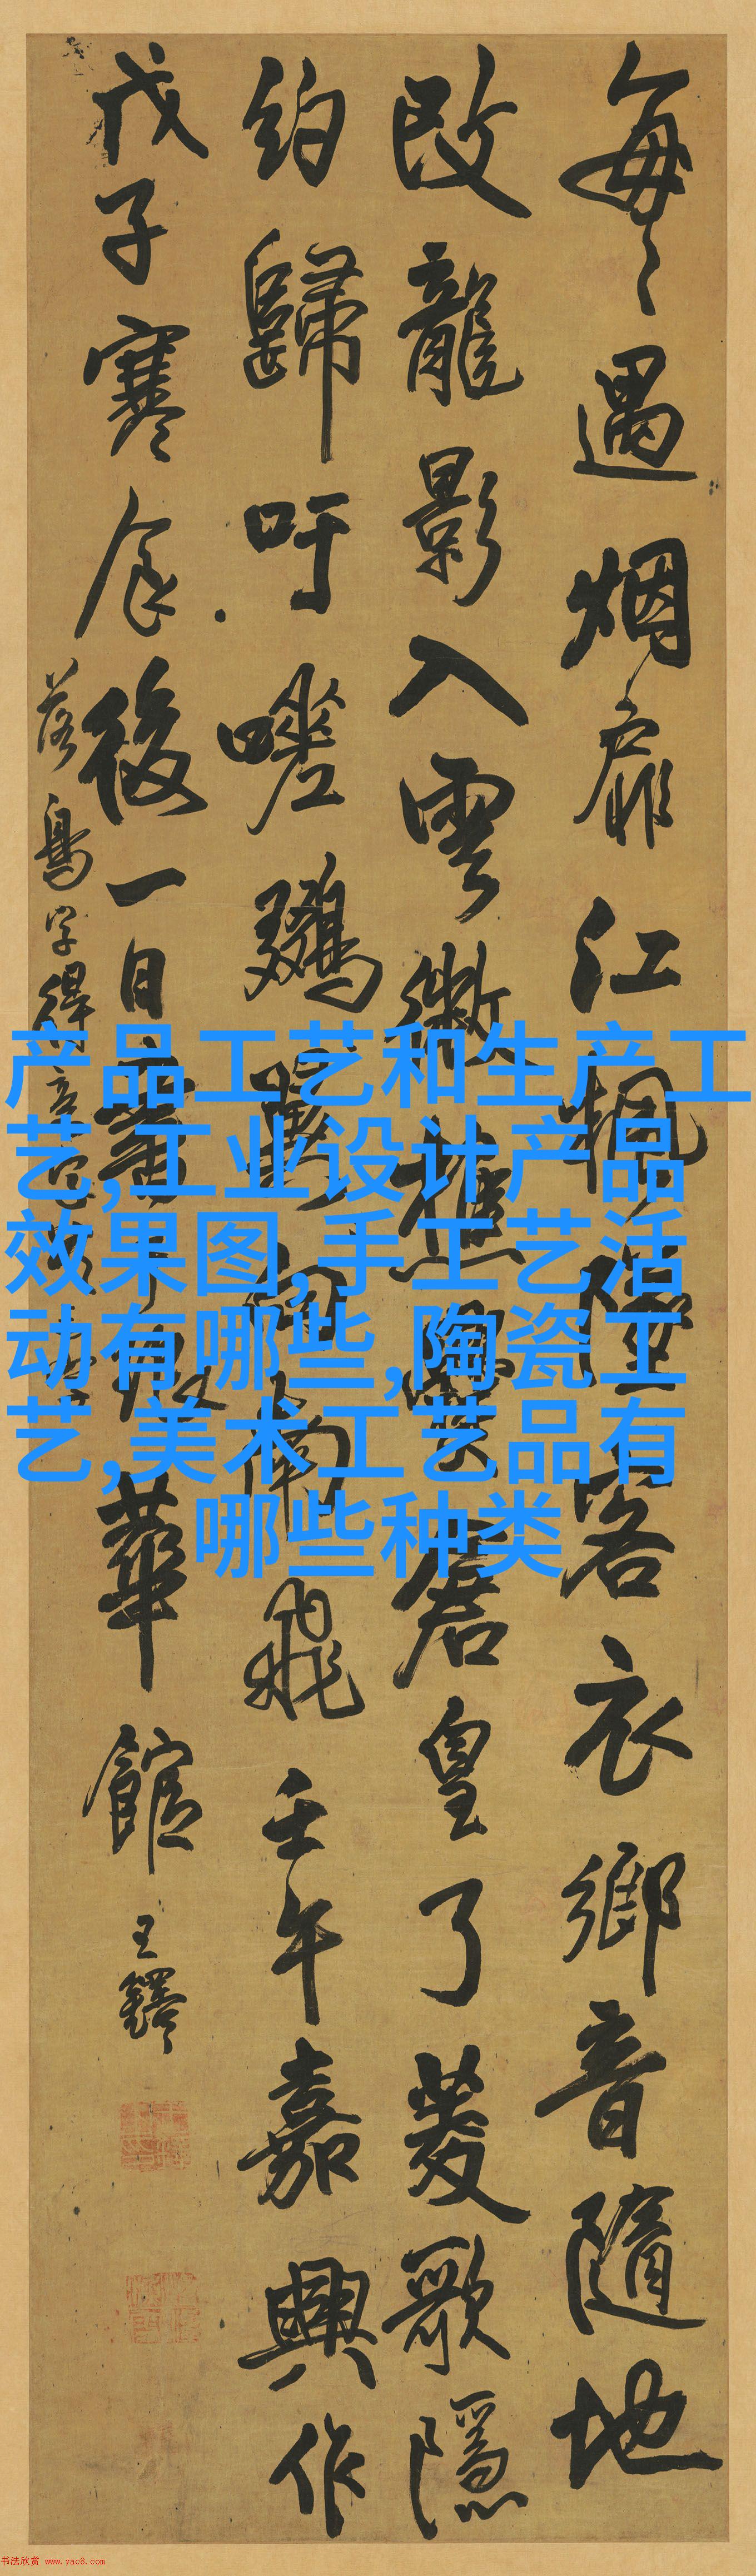 每每遇烟扉江楓隱客衣鄉音隨地
改龍影入雲微樵響窅皇了菱歌隱
約歸吁嗟鷄鶩南飛壬午嘉興作
戊子寒食後一日書華館王鐸
落鳥字得
产品工艺和生产工
艺,工业设计产品
效果图,手工艺活
动有哪些,陶瓷工
艺,美术工艺品有
哪些种类
书法欣赏 www.yac8.com